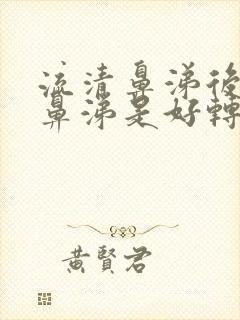 流清鼻涕後
鼻涕是好轉
黃賢君